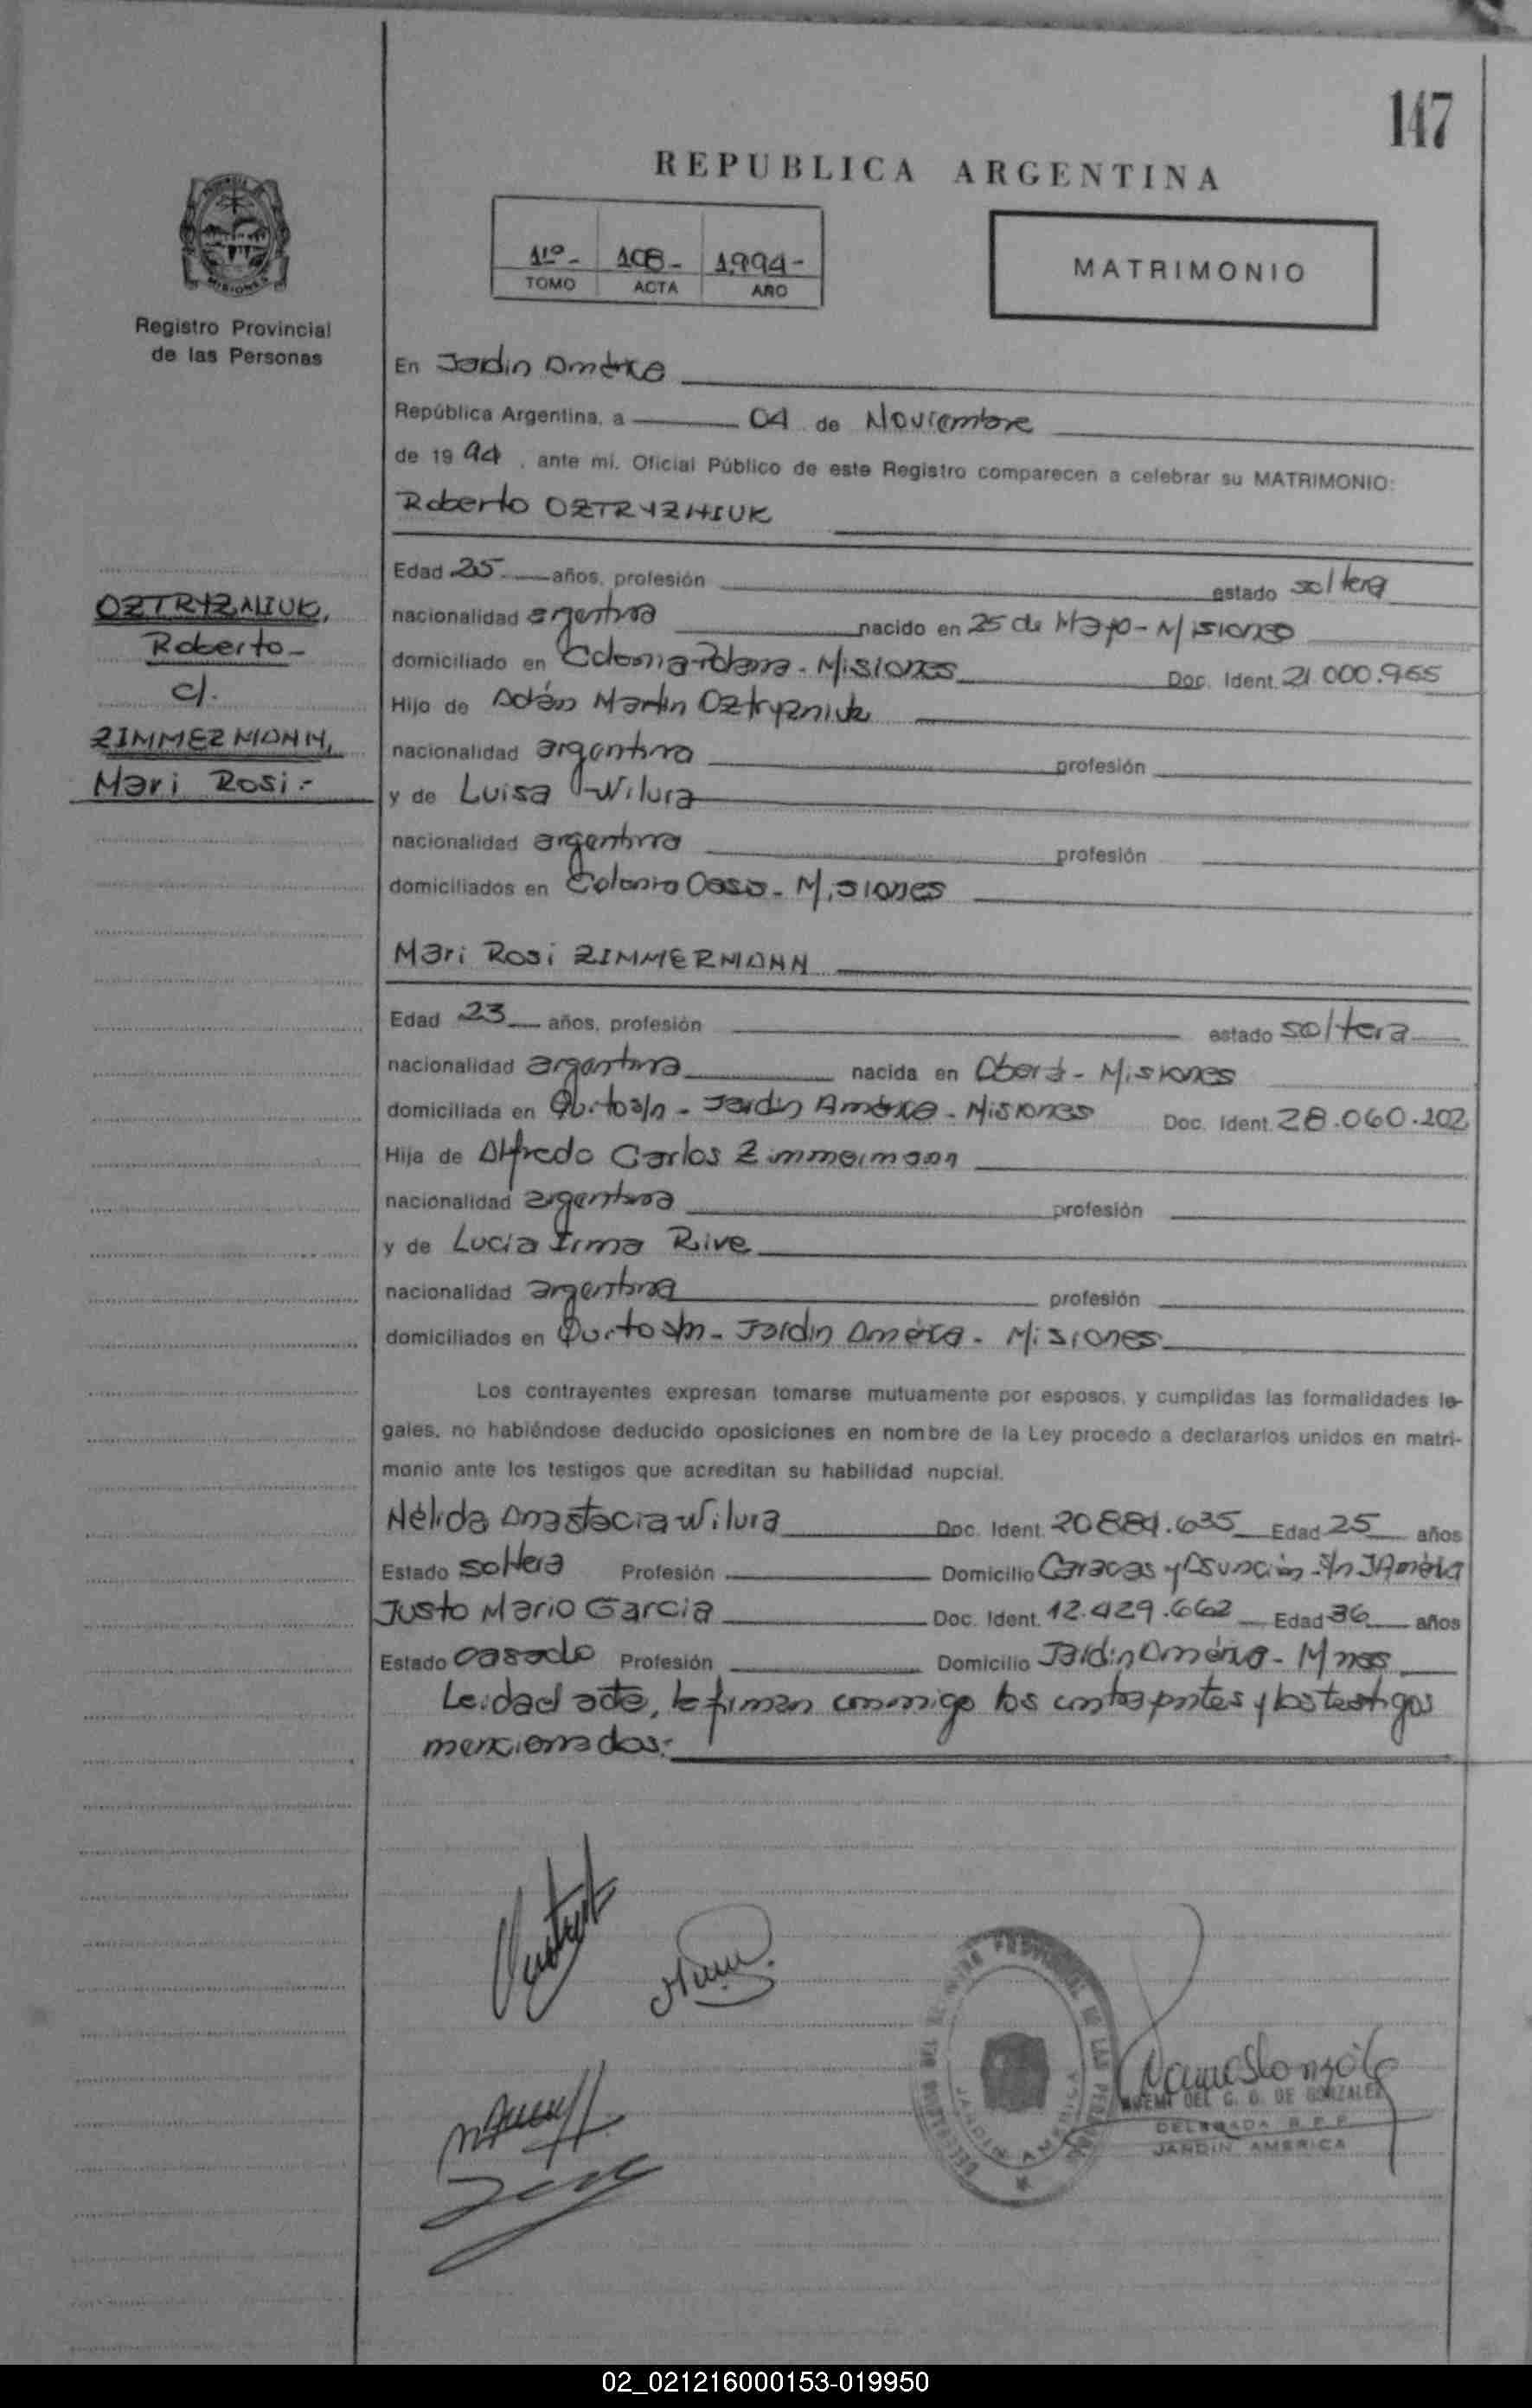 147
REPUBLICA ARGENTINA
1º- 108- 1994-
TOMO ACTA AÑO
MATRIMONIO
Registro Provincial
de las Personas
En Jardín América
República Argentina, a 04 de Noviembre
de 1994, ante mi, Oficial Público de este Registro comparecen a celebrar su MATRIMONIO:
Roberto OZTRYZNIUK
Edad 25 años, profesión estado soltera
nacionalidad argentina nacido en 25 de Mayo - Misiones
domiciliado en Colonia Polana - Misiones Doc. Ident. 21.000.965
Hijo de Adán Martín Oztryzniuk
nacionalidad argentina profesión
y de Luisa Wilura
nacionalidad argentina profesión
domiciliados en Colonia Oasis - Misiones
OZTRYZNIUK,
Roberto -
c/.
ZIMMERMANN,
Mari Rosi.-
Mari Rosi ZIMMERMANN
Edad 23 años, profesión estado soltera
nacionalidad argentina nacida en Oberá - Misiones
domiciliada en Quito s/n - Jardín América - Misiones Doc. Ident. 28.060.202
Hija de Alfredo Carlos Zimmermann
nacionalidad argentina profesión
y de Lucia Irma Rive
nacionalidad argentina profesión
domiciliados en Quito s/n - Jardín América - Misiones
Los contrayentes expresan tomarse mutuamente por esposos, y cumplidas las formalidades le-
gales, no habiéndose deducido oposiciones en nombre de la Ley procedo a declararlos unidos en matri-
monio ante los testigos que acreditan su habilidad nupcial.
Nélida Anastacia Wilura Doc. Ident. 20.884.635 Edad 25 años
Estado soltera Profesión Domicilio Caracas y Asunción s/n J América
Justo Mario Garcia Doc. Ident. 12.429.662 Edad 36 años
Estado casado Profesión Domicilio Jardín América - Mnes
Leida el acta, la firman conmigo los contrayentes y los testigos
mencionados.-
DEL C. G. DE GONZALEZ
DELEGADA R.P.P.
JARDIN AMERICA
02_021216000153-019950